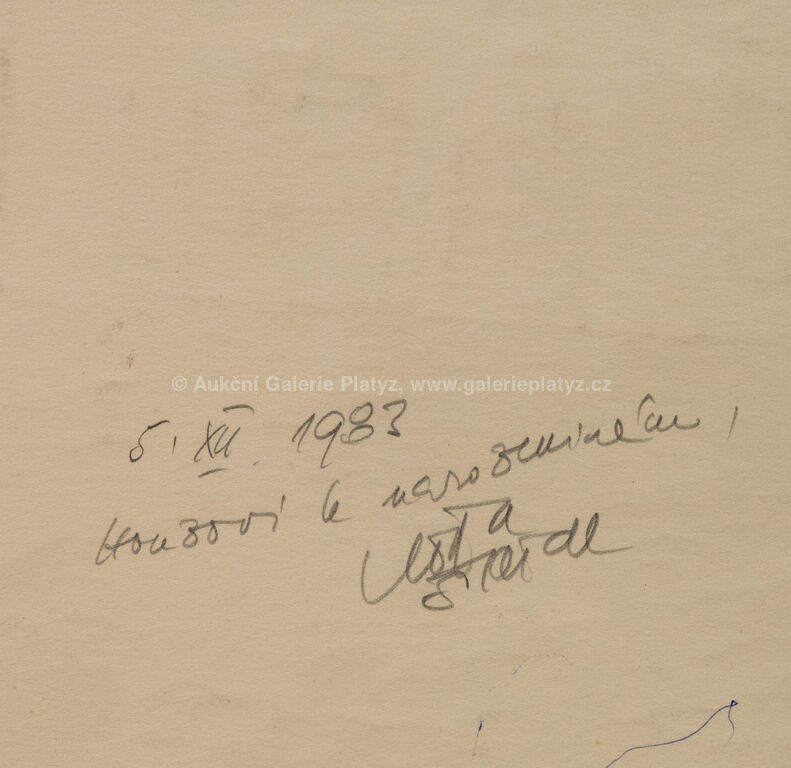 © Aukční Galerie Platýz, www.galerieplatyz.cz
5. XII. 1983
Honzovi k narozeninám,